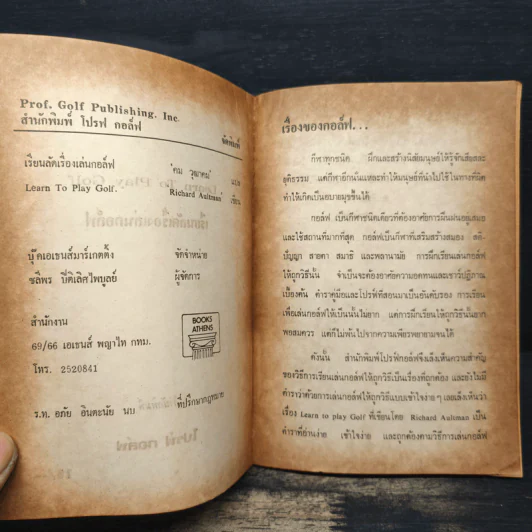 Prof. Golf Publishing. Inc
สำนักพิมพ์ โปรฟ กอล์ฟ
จัดพิมพ์
เรียนลัดเรื่องเล่นกอล์ฟ
"คม วุฒาคม" แปล
Learn To Play Golf.
Richard Aultman เขียน
บุ๊คเอเชนส์มาร์เกตติ้ง
จัดจำหน่าย
ชลีพร ปิติเลิศไพบูลย์
ผู้จัดการ
สำนักงาน
BOOKS
ATHENS
69/66 เอเชนส์ พญาไท กทม.
โทร. 2520841
ร.ท. อภัย อินตะนัย นบ
ที่ปรึกษากฎหมาย
เรื่องของกอล์ฟ...
กีฬาทุกชนิด ฝึกและสร้างนิสัยมนุษย์ให้รู้จักเสียและ
ยุติธรรม แต่กีฬาอีกนั่นแหละทำให้มนุษย์ที่นำไปใช้ในทางที่ผิด
ทำให้เกิดเป็นอบายมุขขึ้นได้
กอล์ฟ เป็นกีฬาชนิดเดียวที่ต้องอาศัยการฝึกฝนอยู่เสมอ
และใช้สถานที่มากที่สุด กอล์ฟเป็นกีฬาที่เสริมสร้างสมอง สติ-
ปัญญา สายตา สมาธิ และพลานามัย การฝึกเรียนเล่นกอล์ฟ
ให้ถูกวิธีนั้น จำเป็นจะต้องอาศัยความอดทนและเชาว์ปฏิภาณ
เบื้องต้น ตำราคู่มือและโปรฟที่สอนมาเป็นอันดับรอง การเรียน
เพื่อเล่นกอล์ฟให้เป็นนั้นไม่ยาก แต่การฝึกเรียนให้ถูกวิธีนั้นยาก
พอสมควร แต่ก็ไม่พ้นไปจากความเพียรพยายามจนได้
ดังนั้น สำนักพิมพ์โปรฟกอล์ฟจึงเล็งเห็นความสำคัญ
ของวิธีการเรียนเล่นกอล์ฟให้ถูกวิธีเป็นเรื่องที่ถูกต้อง และยังไม่มี
ตำราว่าด้วยการเล่นกอล์ฟให้ถูกวิธีแบบเข้าใจง่าย ๆ เลยเล็งเห็นว่า
เรื่อง Learn to play Golf ที่เขียนโดย Richard Aultman เป็น
ตำราที่อ่านง่าย เข้าใจง่าย และถูกต้องตามวิธีการเล่นกอล์ฟ